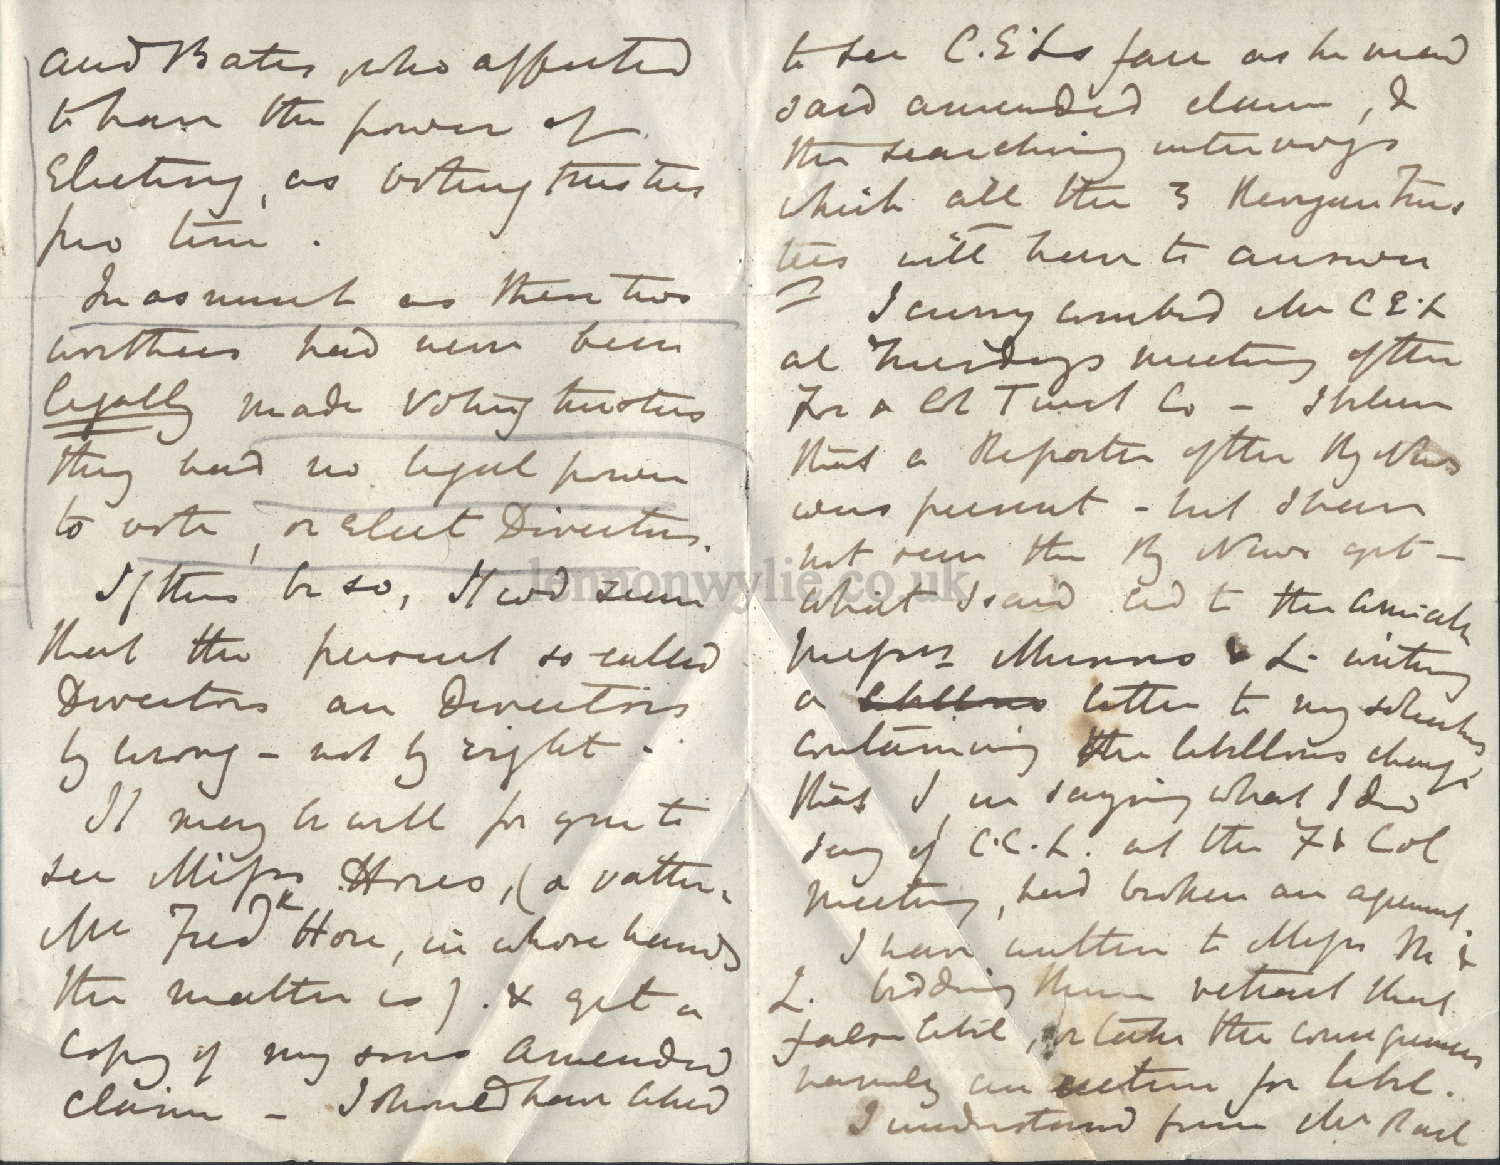 and Bates, who affected
to have the power of
Electing, as voting trustees
pro tem.
Inasmuch as these two
worthies had never been
legally made voting trustees
they had no legal power
to vote, or Elect Directors.
If this be so, it wd seem
that the present so-called
Directors are Directors
by wrong - not by right -
It may be well for you to
see Messrs Hores, (or rather
Mr Fredk Hore, in whose hands
the matter is). & get a
Copy of my sons Amended
claim - I should have liked
to see C.E.Ls face as he read
said amended claim, &
the searching interrogs
which all the 3 Reorgan Trus
tees will have to answer
I curry combed Mr C E.L
at Tuesdays meeting of the
For & Col Trust Co - I believe
that a Reporter of the Ry News
was present - but I have
not seen the Ry News yet -
what I said led to the
Messrs Munns & L. writing
a libellous letter to my solicitors
containing the libellous charge
that I, in saying what I did
say of C.C.L. at the F & Col
meeting, had broken an agreemt.
I have written to Messrs M &
L. bidding them retract that
false libel, or take the consequences
namely an action for libel.
I understand from Mr
lennonwylie.co.uk